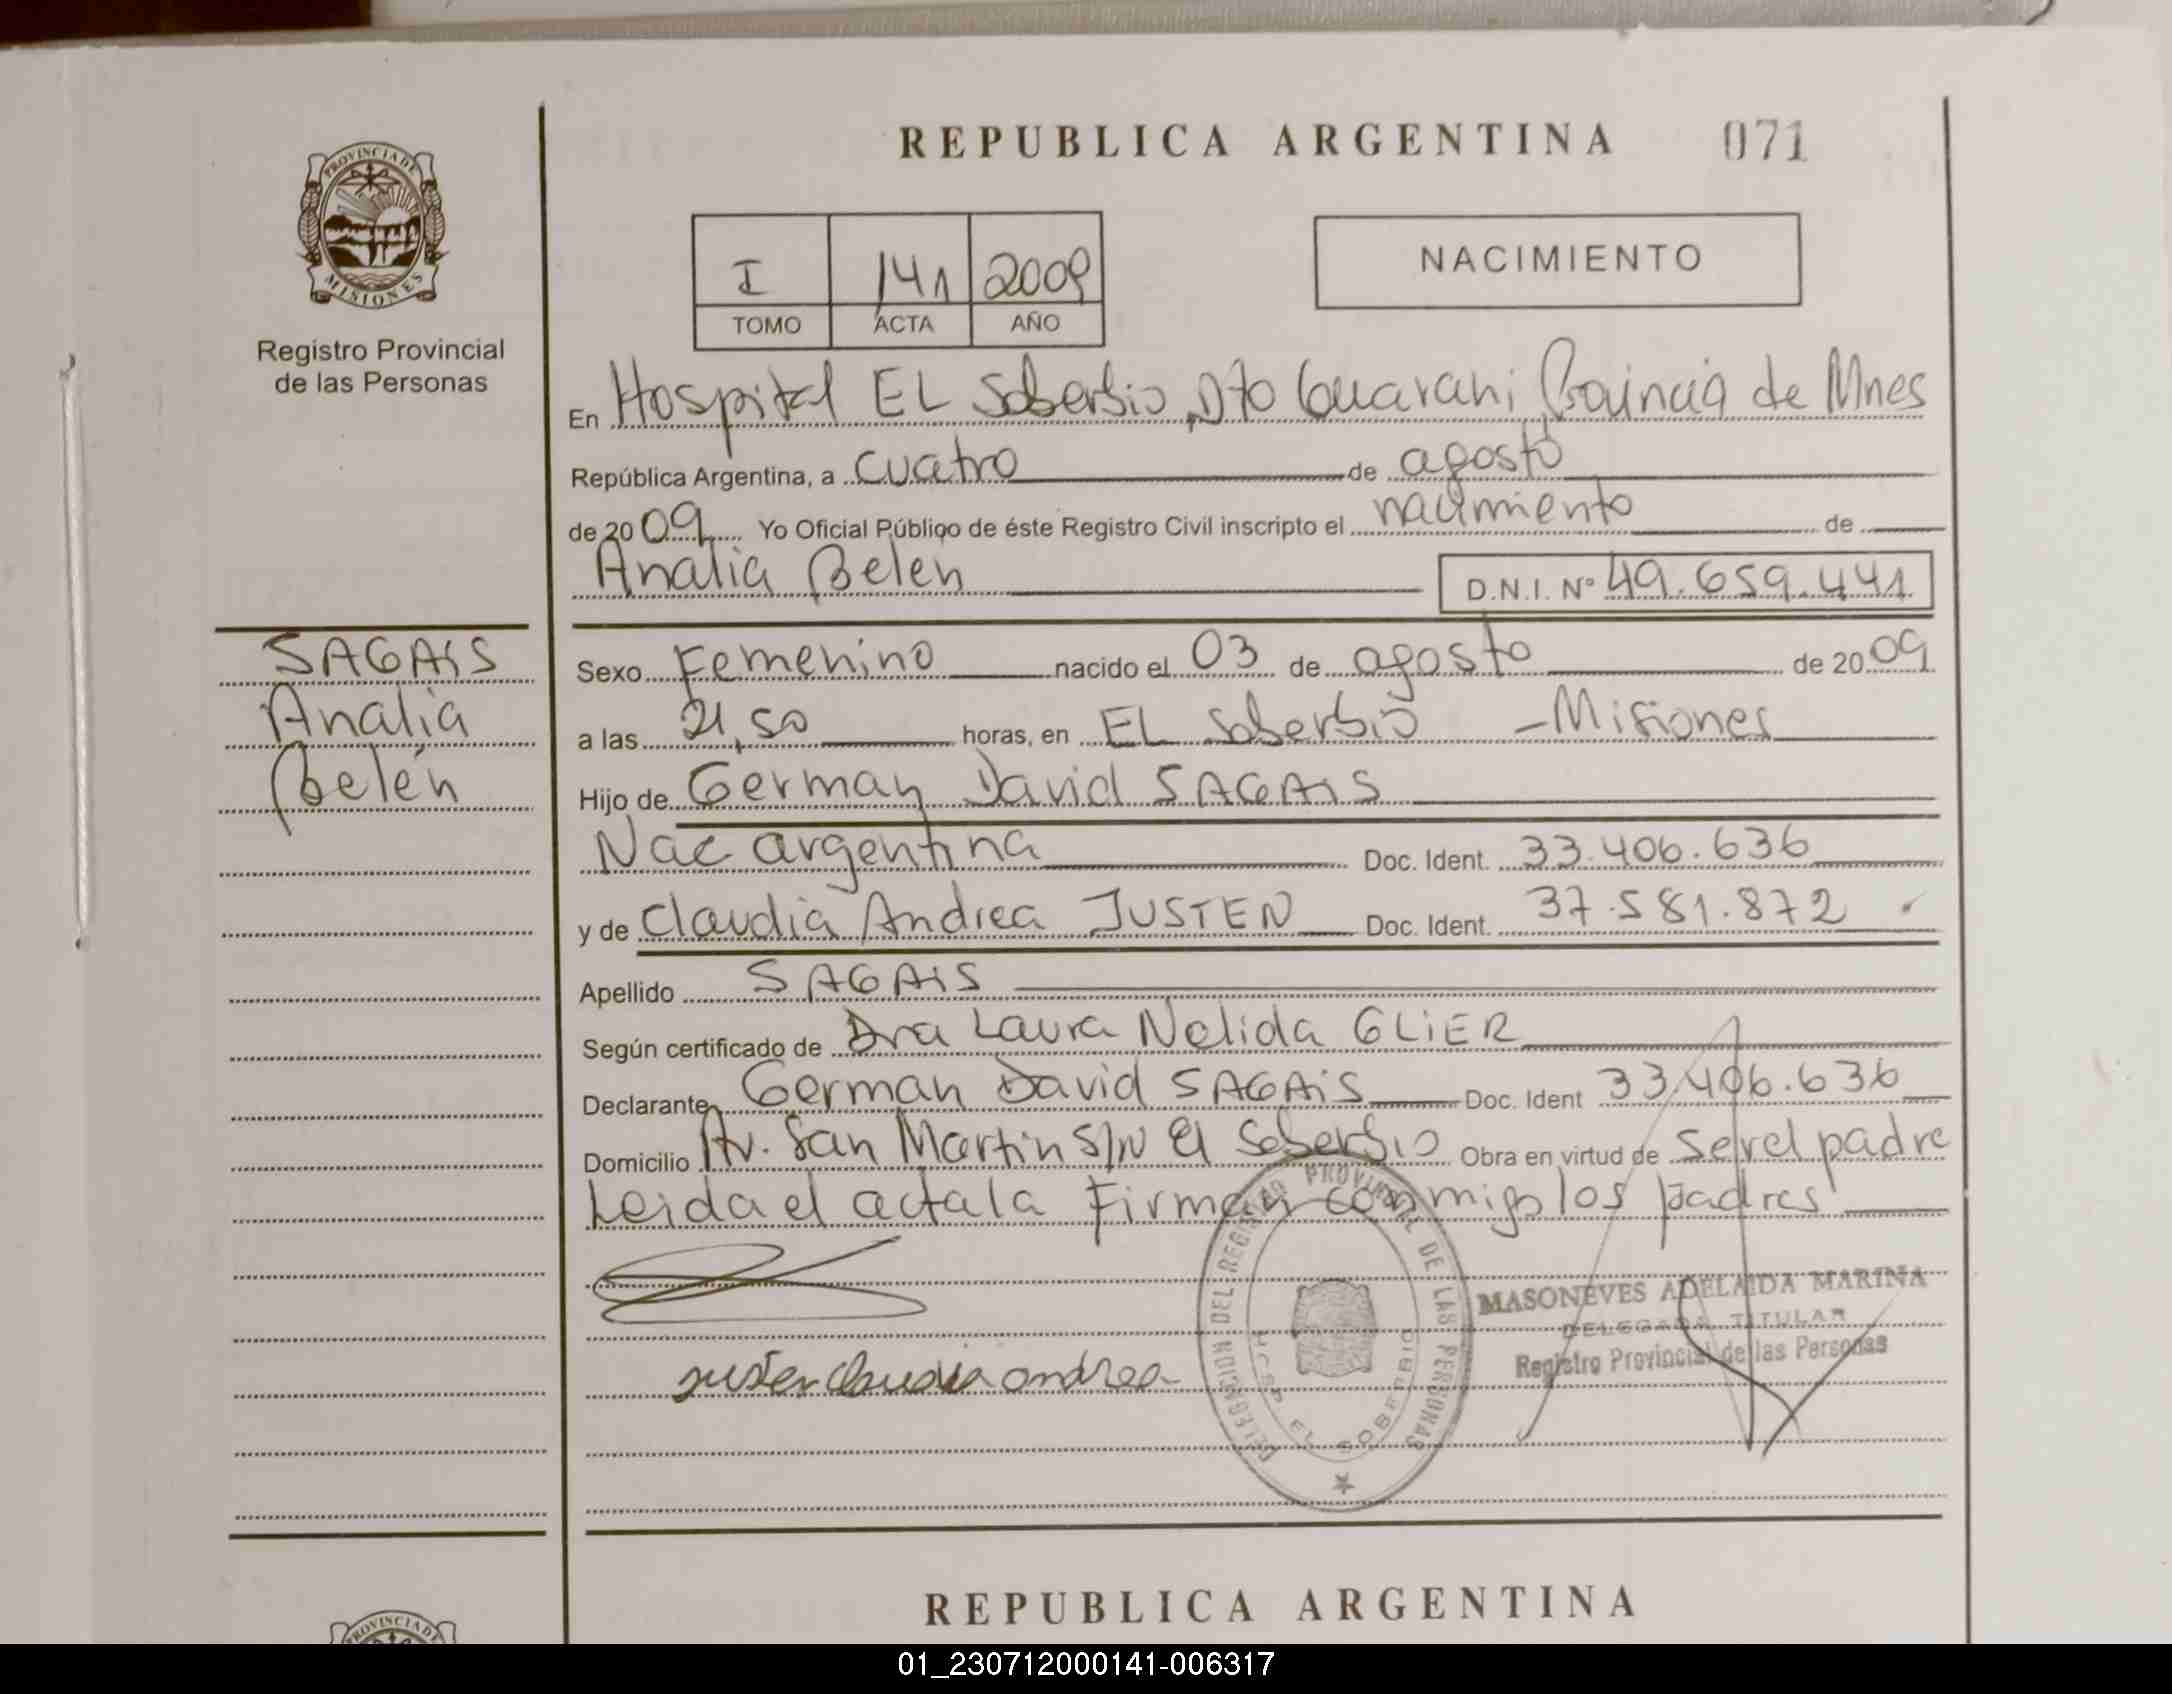 PROVINCIA DE
MISIONES
Registro Provincial
de las Personas
SAGAIS
Analia
Belén
REPUBLICA ARGENTINA 071
I 141 2009
TOMO ACTA AÑO
NACIMIENTO
En Hospital EL Soberbio, Dto Guarani Provincia de Mnes
República Argentina, a cuatro de agosto
de 2009 Yo Oficial Público de éste Registro Civil inscripto el nacimiento de
Analia Belen D.N.I. Nº 49.659.441
Sexo Femenino nacido el 03 de agosto de 2009
a las 21,50 horas, en EL Soberbio - Misiones
Hijo de German David SAGAIS
Nac argentina Doc. Ident. 33.406.636
y de Claudia Andrea JUSTEN Doc. Ident. 37.581.872
Apellido SAGAIS
Según certificado de Dra Laura Nelida GLIER
Declarante German David SAGAIS Doc. Ident 33.406.636
Domicilio Av. San Martin S/N El Soberbio Obra en virtud de ser el padre
Leida el acta la Firman conmigo los padres
justen claudia andrea
DELEGACION DEL REGISTRO PROVINCIAL DE LAS PERSONAS
HOSP. EL SOBERBIO
MASONEVES ADELAIDA MARINA
DELEGADA TITULAR
Registro Provincial de las Personas
REPUBLICA ARGENTINA
PROVINCIA DE
01_230712000141-006317